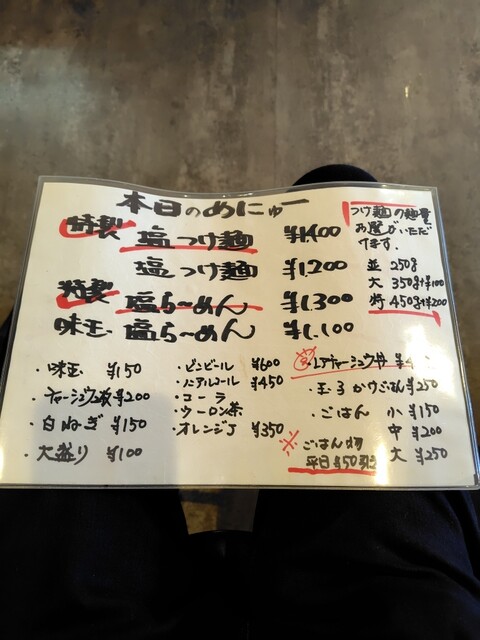 本日のめにゅー
特製 塩つけ麺 ¥1,400
塩つけ麺 ¥1,200
特製 塩らーめん ¥1,300
味玉 塩らーめん ¥1,100
つけ麺の麺量
お選びいただ
けます。
並 250g
大 350g+¥100
特 450g+¥200
・味玉 ¥150
・チャーシュー2枚 ¥200
・白ねぎ ¥150
・大盛り ¥100
・ビンビール ¥600
・ノンアルコール ¥450
・コーラ
・ウーロン茶
・オレンジJ ¥350
レアチャーシュウ丼
・玉子かけごはん ¥250
・ごはん 小 ¥150
中 ¥200
大 ¥250
※ごはん物
平日¥50引き